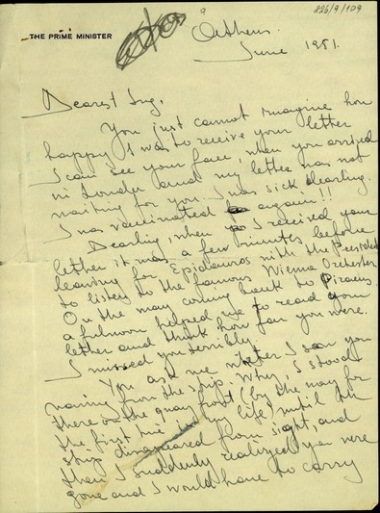 THE PRIME MINISTER
Athens.
June 1951.
Dearest Ing,
You just cannot imagine how
happy I was to receive your letter
I can see your face, when you arrived
in London and my letter was not
waiting for you. I was sick darling.
I was vaccinated again!!
Dearling, when I received your
letter it was a few minutes before
leaving for Epidauros with the President
to listen to the famous Vienna Orchester
On the way coming back to Piraeus
a fulmoon helped me to read your
letter and think how far you were.
I missed you terribly.
You ask me wether I saw you
waving from the ship. Why, I stood
there on the quay front (by the way for
the first time in my life) until the
ship disappeared from sight, and
than I suddenly realized you were
gone and I would have to carry